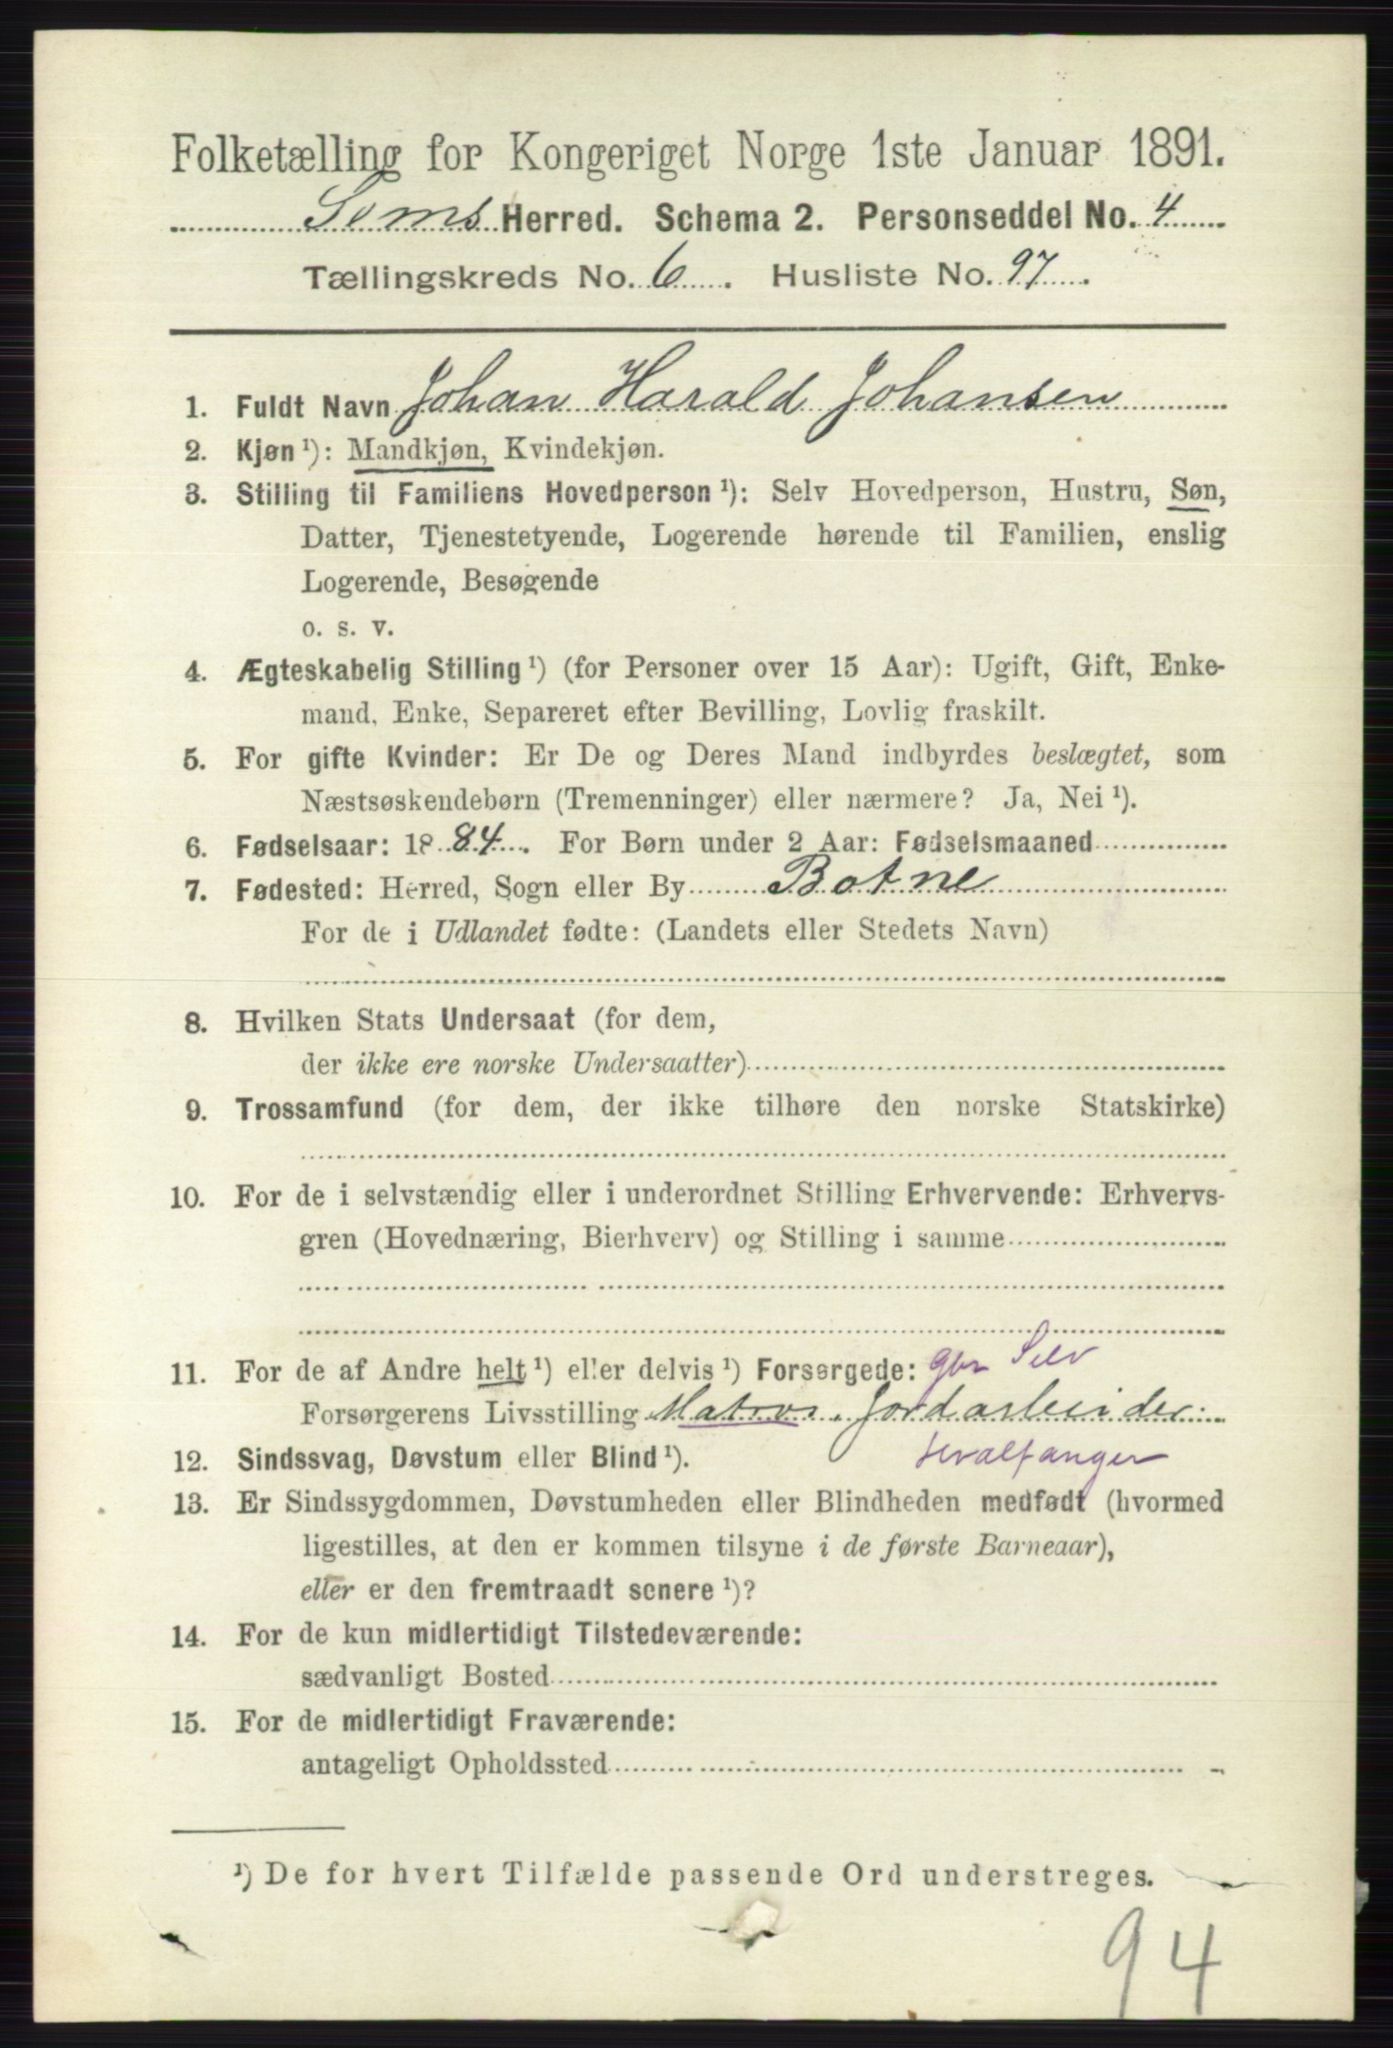 Folketælling for Kongeriget Norge 1ste Januar 1891.
Sems Herred. Schema 2. Personseddel No. 4
Tællingskreds No. 6. Husliste No. 97.
1. Fuldt Navn Johan Harald Johansen
2. Kjøn ¹): Mandkjøn, Kvindekjøn.
3. Stilling til Familiens Hovedperson ¹): Selv Hovedperson, Hustru, Søn,
Datter, Tjenestetyende, Logerende hørende til Familien, enslig
Logerende, Besøgende
o. s. v.
4. Ægteskabelig Stilling ¹) (for Personer over 15 Aar): Ugift, Gift, Enke-
mand, Enke, Separeret efter Bevilling, Lovlig fraskilt.
5. For gifte Kvinder: Er De og Deres Mand indbyrdes beslægtet, som
Næstsøskendebørn (Tremenninger) eller nærmere? Ja, Nei ¹).
6. Fødselsaar: 1884. For Børn under 2 Aar: Fødselsmaaned
7. Fødested: Herred, Sogn eller By Botne
For de i Udlandet fødte: (Landets eller Stedets Navn)
8. Hvilken Stats Undersaat (for dem,
der ikke ere norske Undersaatter)
9. Trossamfund (for dem, der ikke tilhøre den norske Statskirke)
10. For de i selvstændig eller i underordnet Stilling Erhvervende: Erhvervs-
gren (Hovednæring, Bierhverv) og Stilling i samme
11. For de af Andre helt ¹) eller delvis ¹) Forsørgede: gbr Selv
Forsørgerens Livsstilling Matros. Jordarbeider
Hvalfanger
12. Sindssvag, Døvstum eller Blind ¹).
13. Er Sindssygdommen, Døvstumheden eller Blindheden medfødt (hvormed
ligestilles, at den er kommen tilsyne i de første Barneaar),
eller er den fremtraadt senere ¹)?
14. For de kun midlertidigt Tilstedeværende:
sædvanligt Bosted
15. For de midlertidigt Fraværende:
antageligt Opholdssted
¹) De for hvert Tilfælde passende Ord understreges.
94